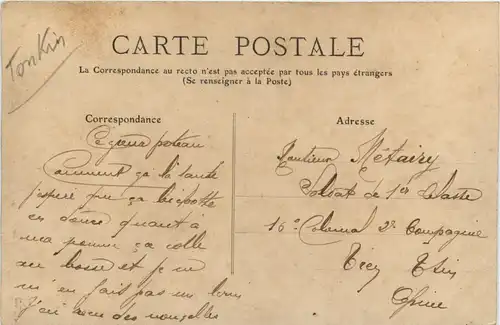 Tonkin
CARTE POSTALE
La Correspondance au recto n'est pas acceptée par tous les pays étrangers
(Se renseigner à la Poste)
Correspondance
Adresse
poteau
Comment ça la santé
j'espère que ça
en douce quant à
ma pomme ça colle
au et je ne
m'en fais pas un
J'ai des nouvelles
Monsieur Métairy
Soldat de 1er classe
16e Colonial 2e Compagnie
Tien Tsin
Chine